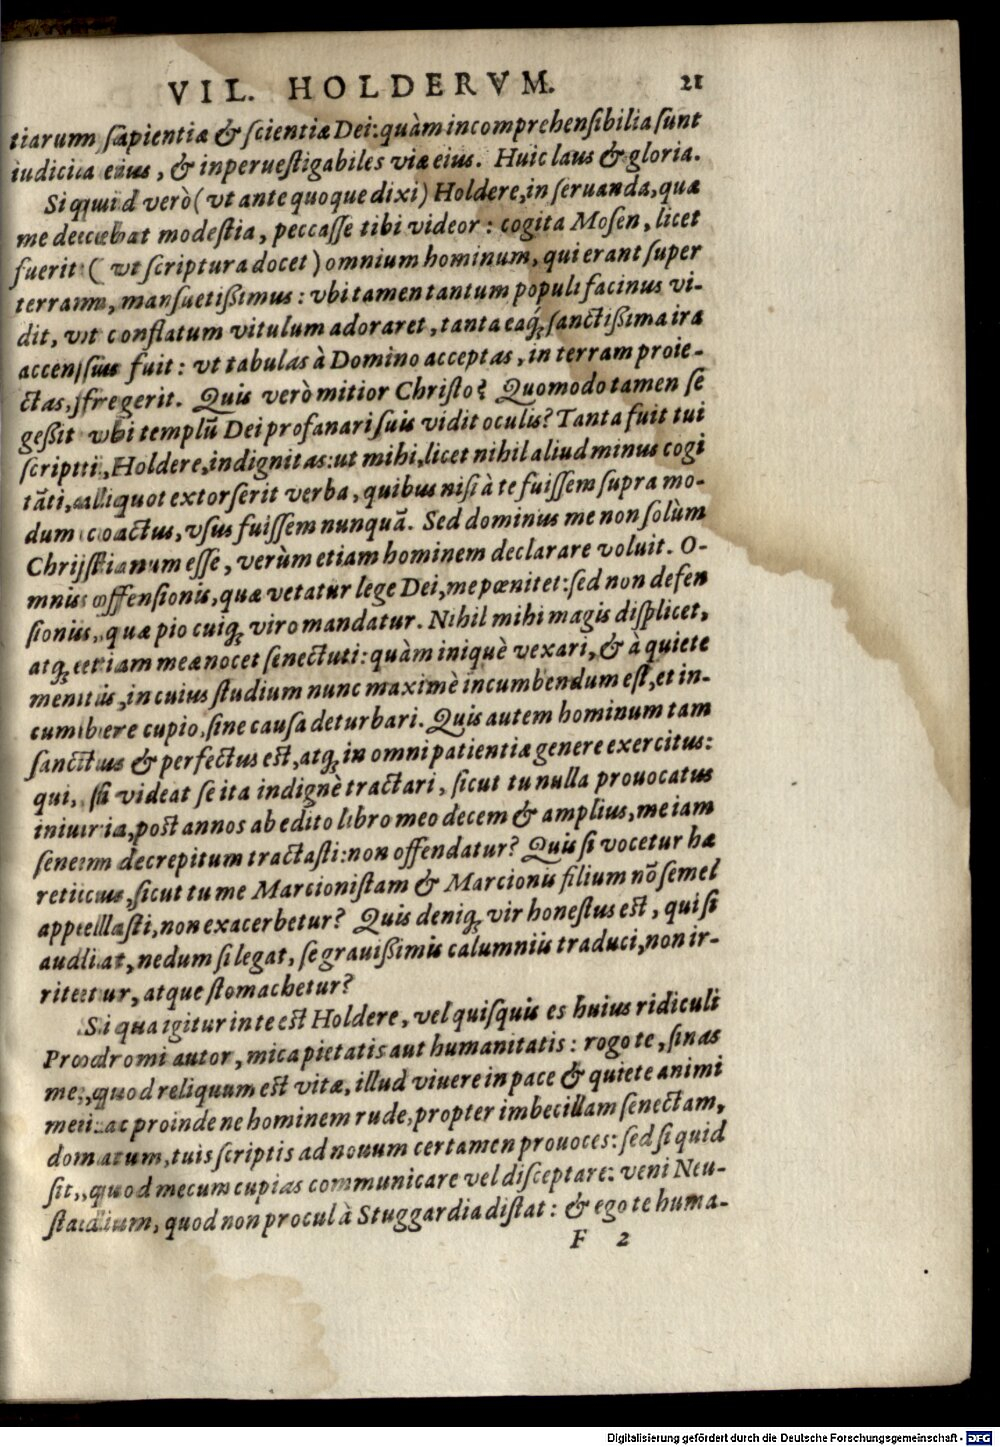 VIL. HOLDERVM. 21
tiarum sapientiæ & scientiæ Dei: quàm incomprehensibilia sunt
iudicia eius, & inperuestigabiles viæ eius. Huic laus & gloria.
Si quid verò (vt ante quoque dixi) Holdere, in seruanda, quæ
me decebat modestia, peccasse tibi videor: cogita Mosen, licet
fuerit (vt scriptura docet) omnium hominum, qui erant super
terram, mansuetißimus: vbi tamen tantum populi facinus vi-
dit, vt conflatum vitulum adoraret, tanta eaq́; sanctißima ira
accensus fuit: vt tabulas à Domino acceptas, in terram proie-
ctas, fregerit. Quis verò mitior Christo? Quomodo tamen se
geßit vbi templũ Dei profanari suis vidit oculis? Tanta fuit tui
scripti, Holdere, indignitas: ut mihi, licet nihil aliud minus cogi
tãti, aliquot extorserit verba, quibus nisi à te fuissem supra mo-
dum coactus, vsus fuissem nunquã. Sed dominus me non solùm
Christianum esse, verùm etiam hominem declarare voluit. O-
mnis offensionis, quæ vetatur lege Dei, me pœnitet: sed non defen
sionis, quæ pio cuiq; viro mandatur. Nihil mihi magis displicet,
atq; etiam meæ nocet senectuti: quàm iniquè vexari, & à quiete
mentis, in cuius studium nunc maximè incumbendum est, et in-
cumbere cupio, sine causa deturbari. Quis autem hominum tam
sanctus & perfectus est, atq; in omni patientiæ genere exercitus:
qui, si videat se ita indignè tractari, sicut tu nulla prouocatus
iniuria, post annos ab edito libro meo decem & amplius, me iam
senem decrepitum tractasti: non offendatur? Quis si vocetur hæ
reticus, sicut tu me Marcionistam & Marcionis filium nõ semel
appellasti, non exacerbetur? Quis deniq; vir honestus est, qui si
audiat, nedum si legat, se grauißimis calumniis traduci, non ir-
ritetur, atque stomachetur?
Si qua igitur in te est Holdere, vel quisquis es huius ridiculi
Prodromi autor, mica pietatis aut humanitatis: rogo te, sinas
me, quod reliquum est vitæ, illud viuere in pace & quiete animi
mei: ac proinde ne hominem rude, propter imbecillam senectam,
domatum, tuis scriptis ad nouum certamen prouoces: sed si quid
sit, quod mecum cupias communicare vel disceptare: veni Neu-
stadium, quod non procul à Stuggardia distat: & ego te huma-
F 2
Digitalisierung gefördert durch die Deutsche Forschungsgemeinschaft - DFG